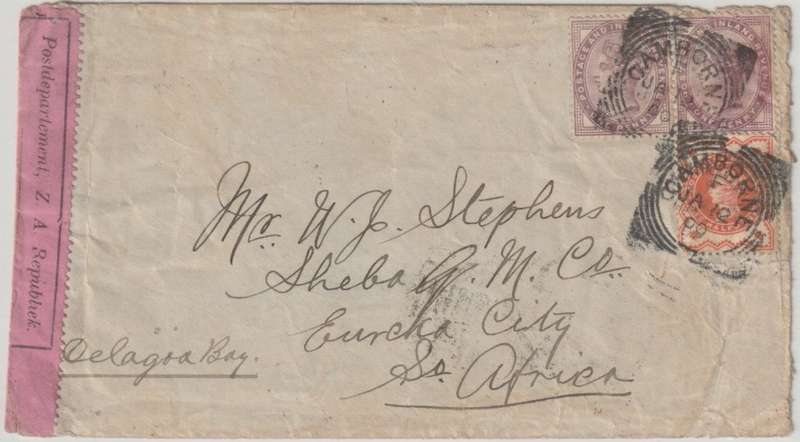 Postdepartement, Z. A. Republiek.
POSTAGE AND INLAND REVENUE
CAMBORNE
CAMBORNE
JA
00
Mr. W. J. Stephens
Sheba G. M. Co.
Eureka City
So. Africa
Delagoa Bay.